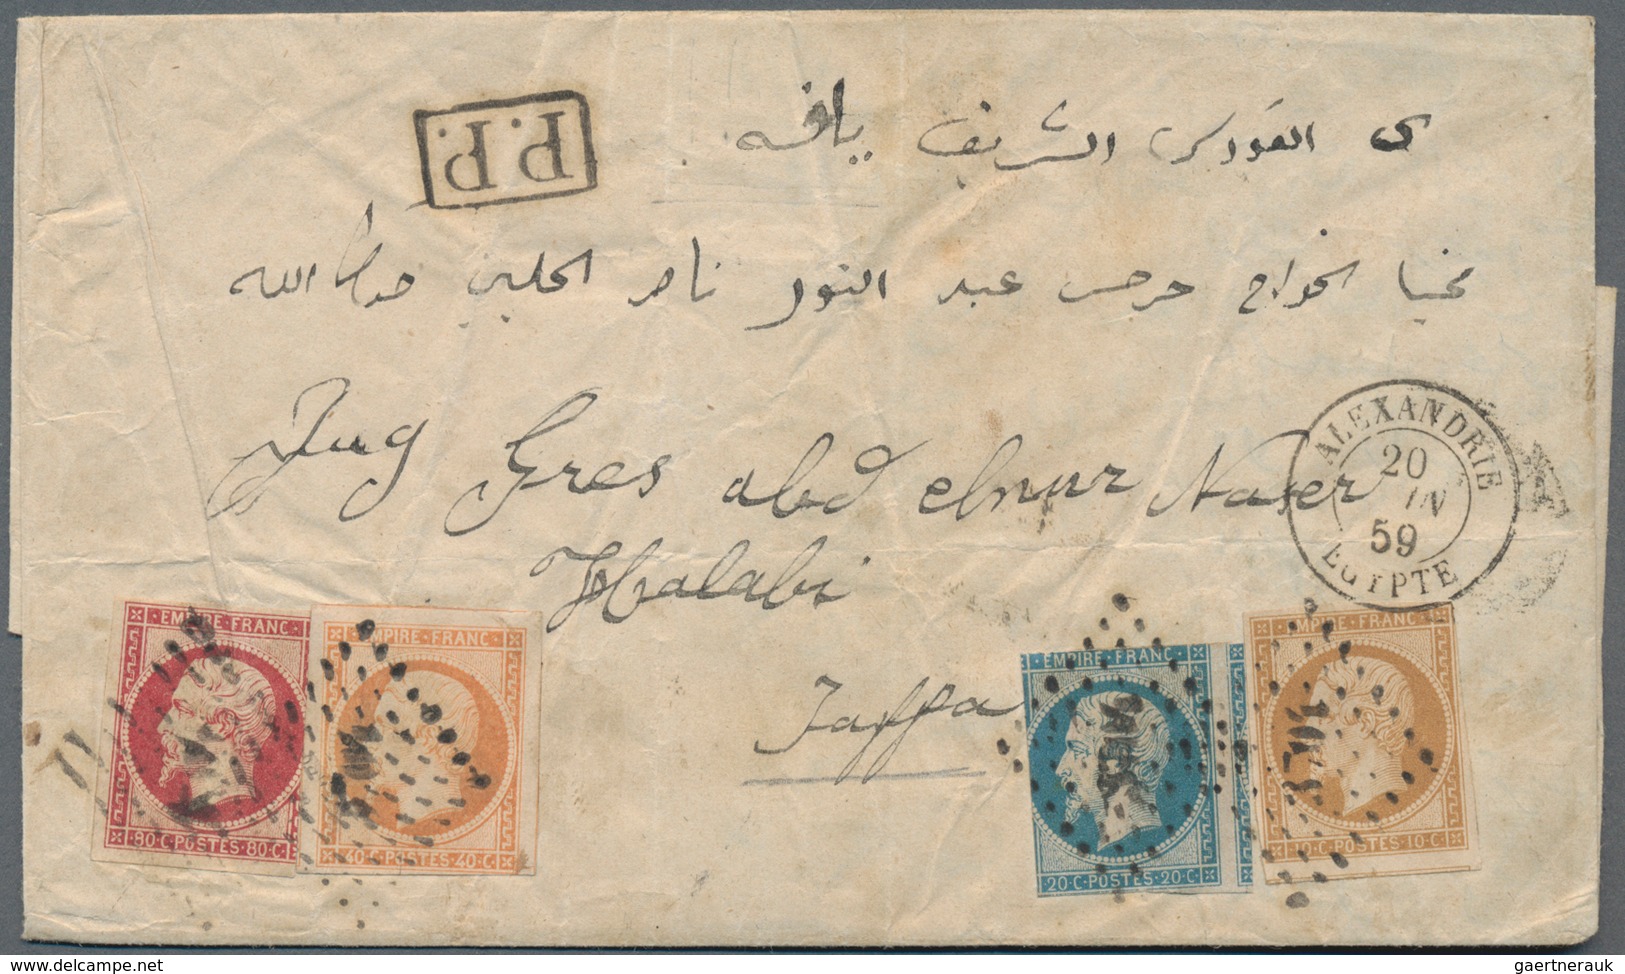 P.P.
الشريف يافه
الخواج جرجس عبد النور ناصر الحلبي حفظه الله
Gres abd elnur Naser
Halabi
Jaffa
ALEXANDRIE
20
JN
59
EGYPTE
EMPIRE · FRANC ·
80·C·POSTES·80·C·
EMPIRE · FRANC ·
40·C·POSTES·40·C·
EMPIRE · FRANC ·
20·C·POSTES·20·C·
EMPIRE · FRANC ·
10·C·POSTES·10·C·
www.delcampe.net
gaertnerauk